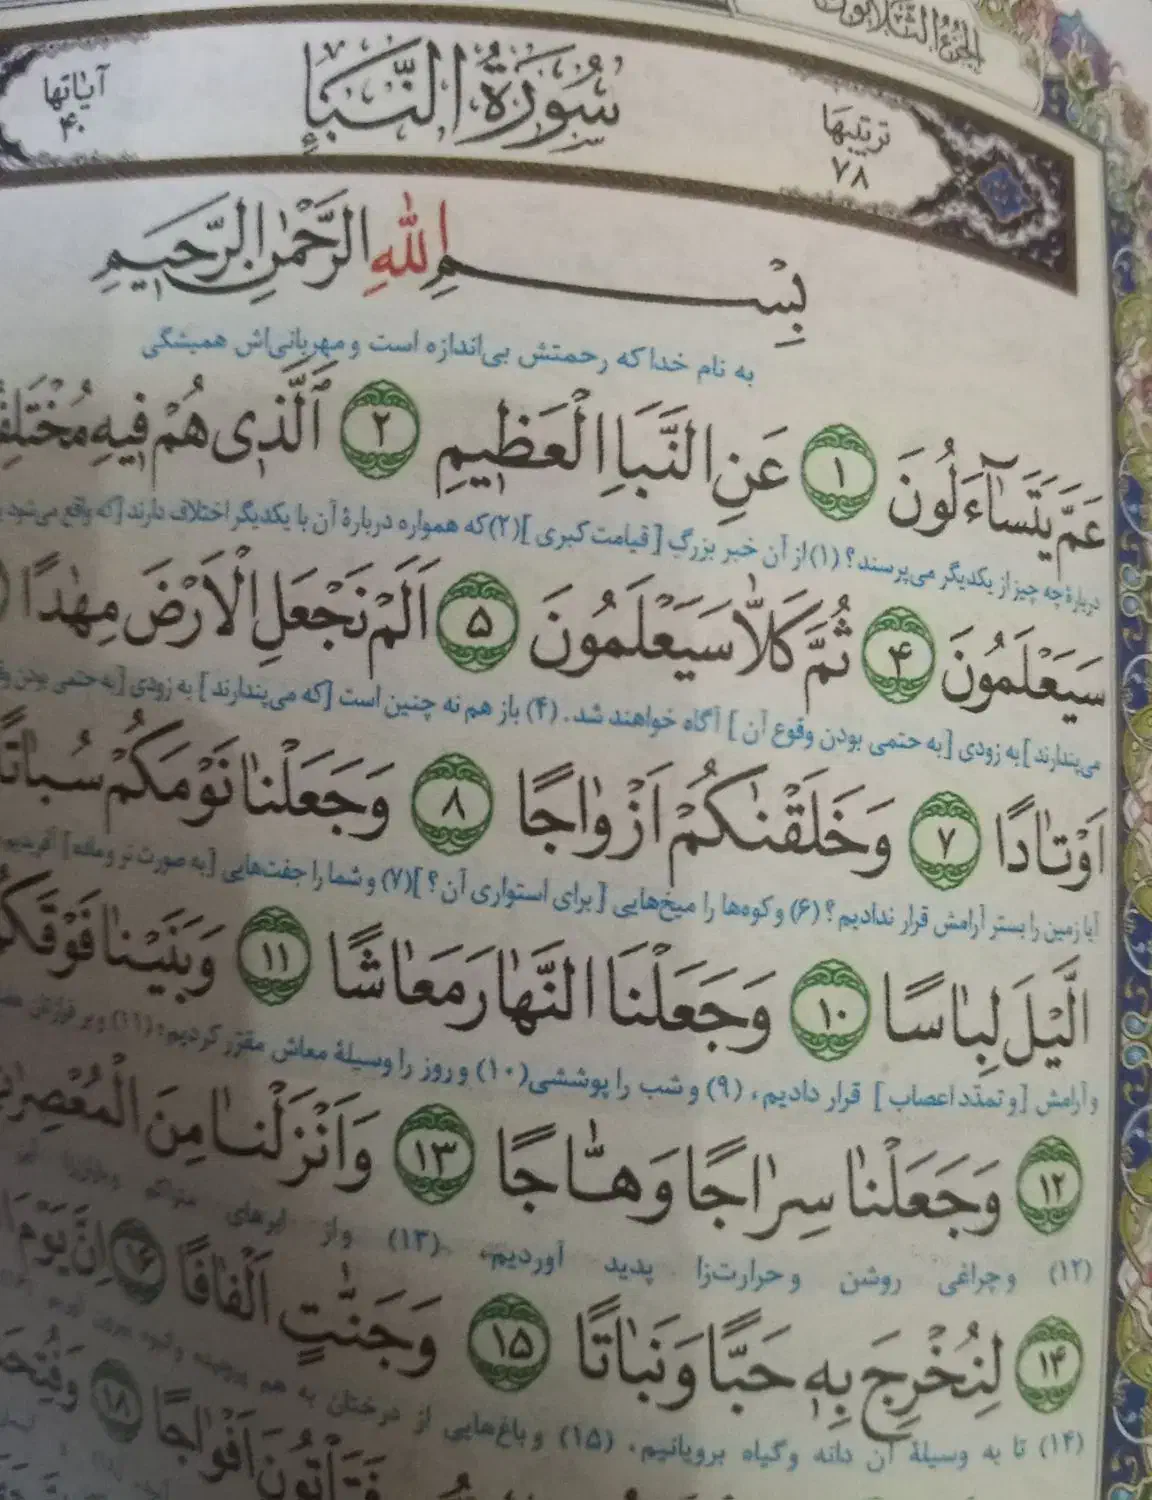 الجزء الثلاثون
ترتیبها ۷۸ سُورَةُ النَّبَإِ آیاتها ۴۰
بِسْمِ اللهِ الرَّحْمٰنِ الرَّحِیمِ
به نام خدا که رحمتش بی‌اندازه است و مهربانی‌اش همیشگی
عَمَّ یَتَسٰاۤءَلُونَ ۱ عَنِ النَّبَاِ الْعَظٖیمِ ۲ اَلَّذٖی هُمْ فٖیهِ
دربارۀ چه چیز از یکدیگر می‌پرسند؟ (۱) از آن خبر بزرگِ [ قیامت کبری ] (۲) که همواره دربارۀ آن با یکدیگر اختلاف دارند [که واقع می‌شود
سَیَعْلَمُونَ ۴ ثُمَّ کَلّاٰ سَیَعْلَمُونَ ۵ اَلَمْ نَجْعَلِ الْاَرْضَ مِهٰدًا
می‌پندارند] به زودی [به حتمی بودن وقوع آن ] آگاه خواهند شد. (۴) باز هم نه چنین است [که می‌پندارند ] به زودی [به حتمی بودن
اَوْتٰادًا ۷ وَخَلَقْنٰکُمْ اَزْوٰاجًا ۸ وَجَعَلْنٰا نَوْمَکُمْ سُبٰاتًا
آیا زمین را بستر آرامش قرار ندادیم؟ (۶) و کوه‌ها را میخ‌هایی [برای استواری آن؟ ] (۷) و شما را جفت‌هایی [به صورت نر و ماده]
الَّیْلَ لِبٰاسًا ۱۰ وَجَعَلْنَا النَّهٰارَ مَعٰاشًا ۱۱ وَبَنَیْنٰا
و آرامش [و تمدّد اعصاب ] قرار دادیم، (۹) و شب را پوششی (۱۰) و روز را وسیلۀ معاش مقرّر کردیم؛ (۱۱) و بر فرازتان
۱۲ وَجَعَلْنٰا سِرٰاجًا وَهّٰاجًا ۱۳ وَاَنْزَلْنٰا مِنَ
(۱۲) و چراغی روشن و حرارت‌زا پدید آوردیم، (۱۳) و از ابرهای
۱۴ لِنُخْرِجَ بِهٖ حَبًّا وَنَبٰاتًا ۱۵ وَجَنّٰتٍ اَلْفٰافًا ۱۶ اِنَّ یَوْمَ
(۱۴) تا به وسیلۀ آن دانه و گیاه برویانیم، (۱۵) و باغ‌هایی از درختان به هم
فَتَأْتُونَ اَفْوٰاجًا ۱۸